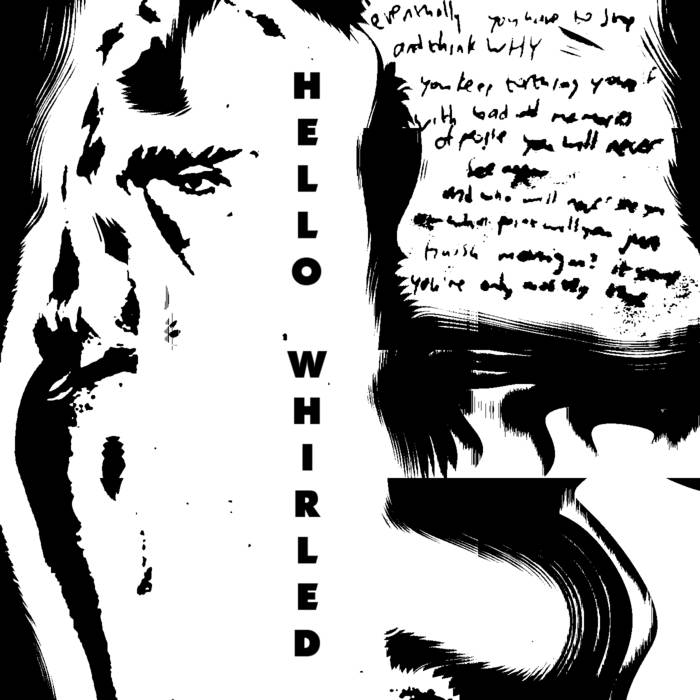 HELLO WHIRLED
eventually you have to stop
and think WHY
you keep torturing yourself
with bad memories
of people you will never
see again
and who will never see you
what point will you just
finish moving on? it seems
you're only mostly